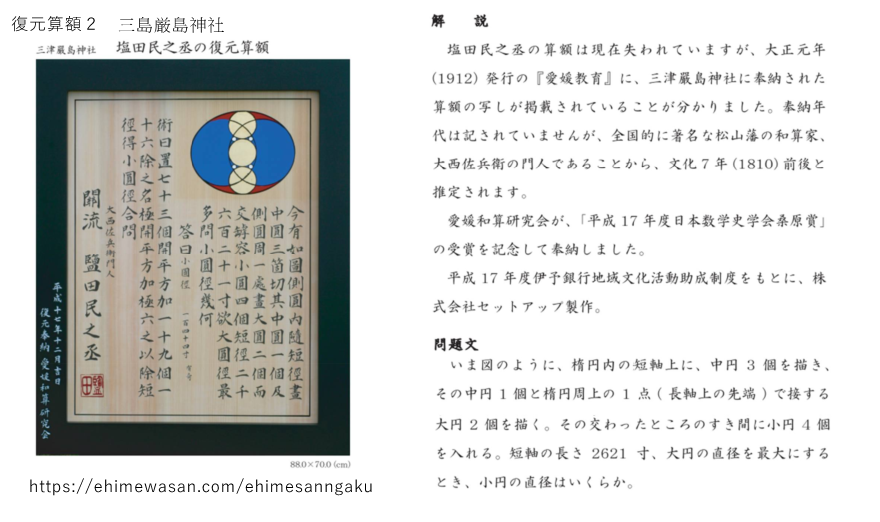 復元算額２　三島厳島神社
三津嚴島神社　塩田民之丞の復元算額
今有如圖側圓内隨短徑畫
中圓三箇切其中圓一個及
側圓周一處畫大圓二個而
交罅容小圓四個短徑二千
六百二十一寸欲大圓徑最
多問小圓徑幾何
答曰小圓徑　一百四十四寸　有奇
術曰置七十三個開平方加一十九個一
十六除之名極開平方加極六之以除短
徑得小圓徑合問
大西佐兵衛門人
關流　鹽田民之丞
平成十七年十二月吉日
復元奉納　愛媛和算研究会
88.0×70.0 (cm)
https://ehimewasan.com/ehimesanngaku
解　説
塩田民之丞の算額は現在失われていますが、大正元年
(1912) 発行の『愛媛教育』に、三津嚴島神社に奉納された
算額の写しが掲載されていることが分かりました。奉納年
代は記されていませんが、全国的に著名な松山藩の和算家、
大西佐兵衛の門人であることから、文化７年 (1810) 前後と
推定されます。
愛媛和算研究会が、「平成 17 年度日本数学史学会桑原賞」
の受賞を記念して奉納しました。
平成 17 年度伊予銀行地域文化活動助成制度をもとに、株
式会社セットアップ製作。
問題文
いま図のように、楕円内の短軸上に、中円 3 個を描き、
その中円 1 個と楕円周上の 1 点 ( 長軸上の先端 ) で接する
大円 2 個を描く。その交わったところのすき間に小円 4 個
を入れる。短軸の長さ 2621 寸、大円の直径を最大にする
とき、小円の直径はいくらか。